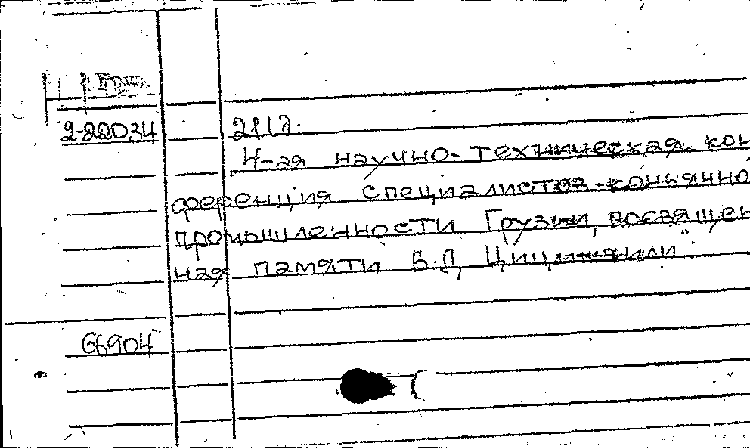 2-22034
211
4-ая научно-техническая кон
ференция специалистов коньячно
промышленности Грузии, посвящен
ная памяти В.Д. Цицишвили
66904